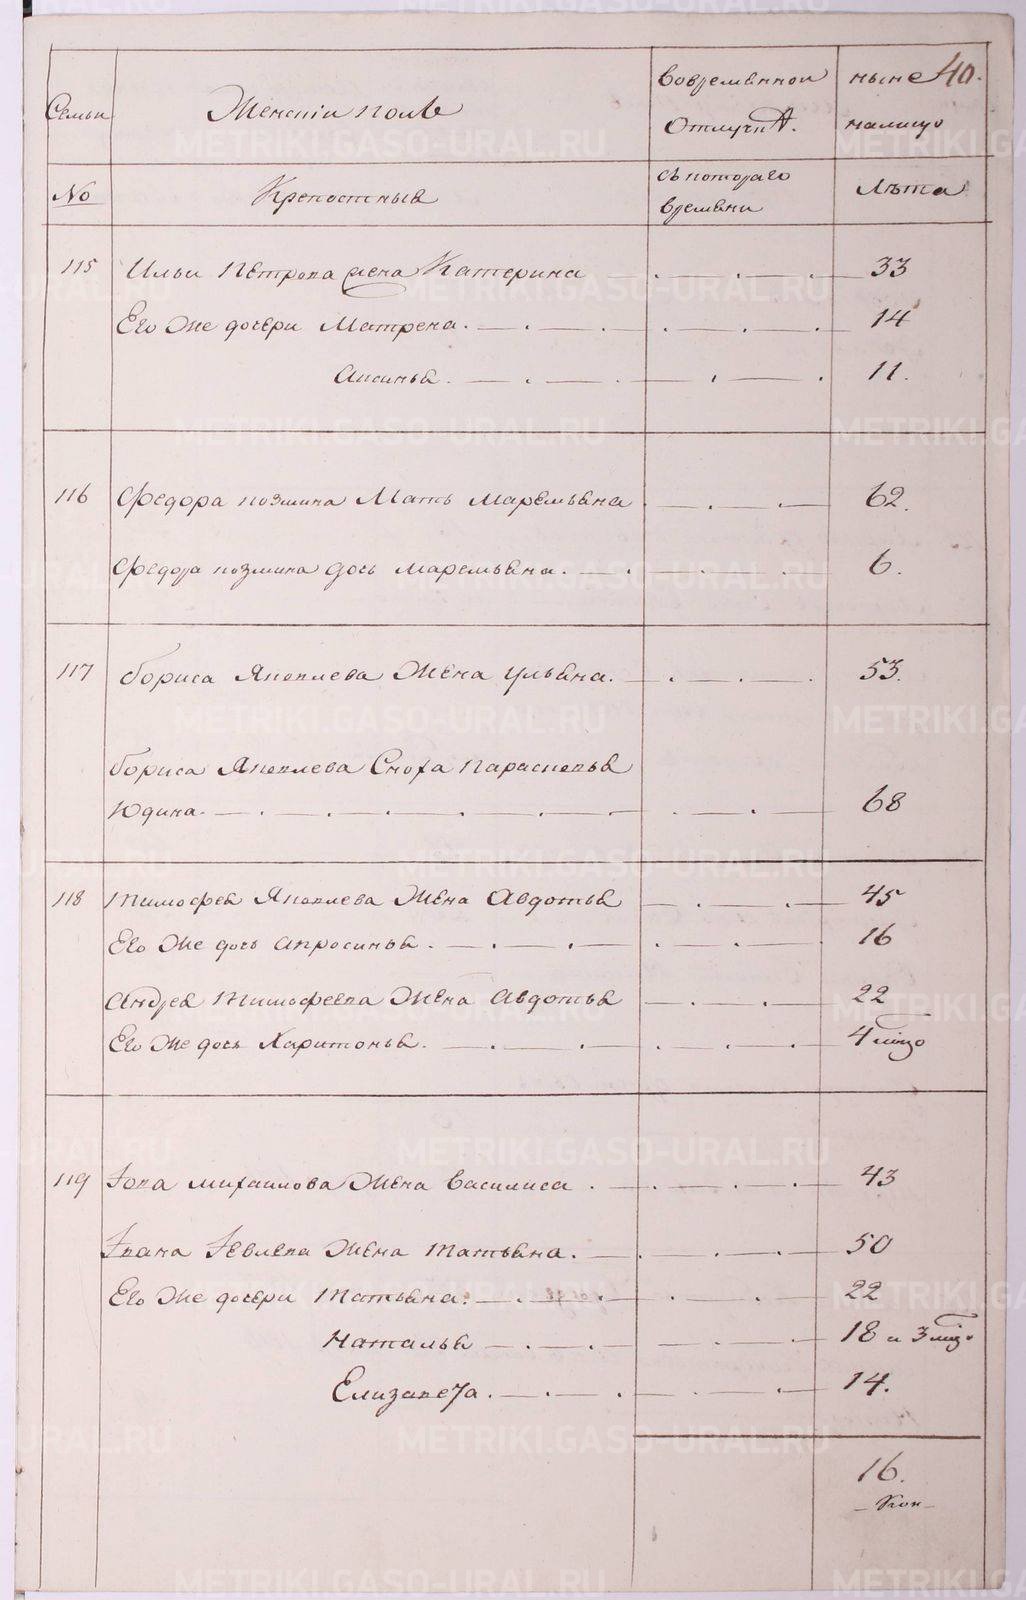 40.
Семьи
Женскiй полъ
Во временной отлучкѣ.
ныне на лицо
No
Крепостные
съ которого времени
Лѣта
115 Ильи Петрова жена Катерина 33
Его же дочери Матрена. 14
Аксинья. 11.
116 Федора козмина Мать маремьяна 62.
Федора козмина дочь маремьяна. 6.
117 Бориса Яковлева Жена ульяна. 53.
Бориса Яковлева Сноха Парасковья
Юдина. 68
118 Тимофея Яковлева Жена Авдотья 45
Его же дочь апросинья. 16
Андрея Тимофеева Жена Авдотья 22
Его же дочь Харитонья. 4 мѣсц
119 Iова михаилова Жена Василиса. 43
Iвана Iевлева Жена татьяна. 50
Его же дочери Татьяна. 22
Наталья 18 и 3 мѣсц
Елизавета. 14.
16.
METRIKI.GASO-URAL.RU